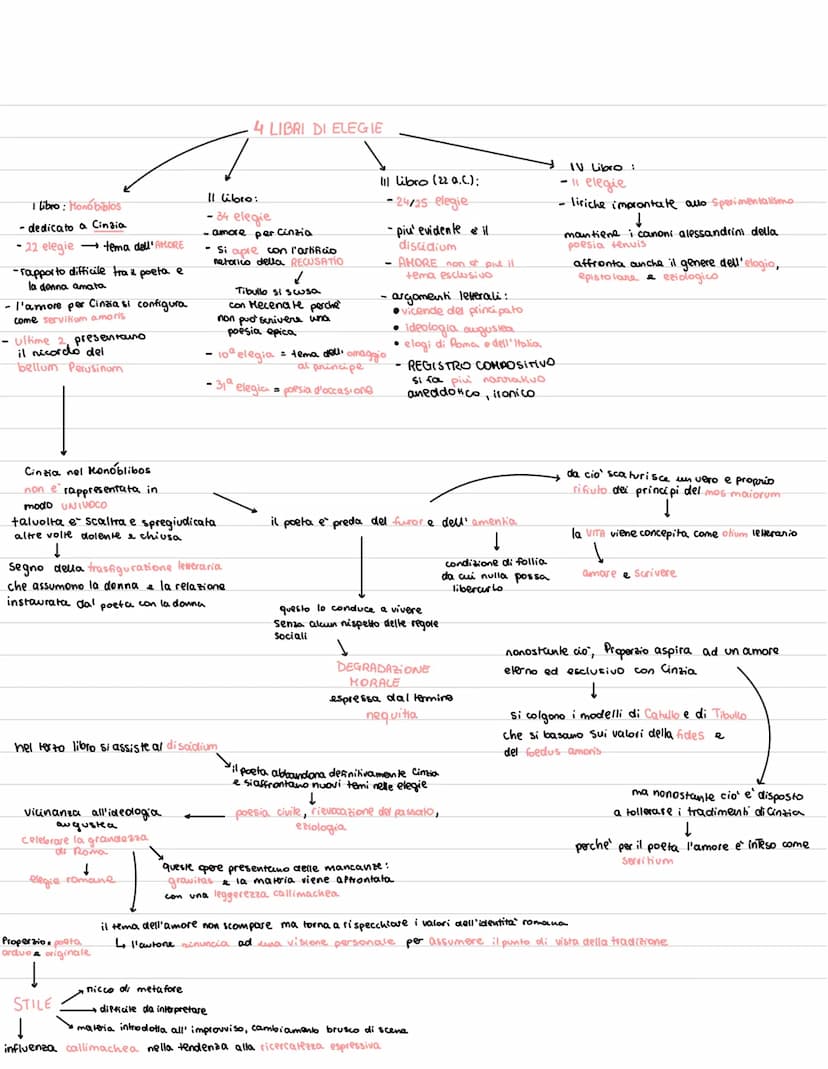 4 LIBRI DI ELEGIE
I libro: Monóbiblos
- dedicato a Cinzia
- 22 elegie → tema dell'AMORE
- rapporto difficile tra il poeta e
la donna amata
- l'amore per Cinzia si configura
come servitium amoris
- Ultime 2 presentano
il ricordo del
bellum Perusinum
II libro:
- 34 elegie
- amore per Cinzia
- Si apre con l'artificio
retorico della RECUSATIO
Tibullo si scusa
con Mecenate perché
non può scrivere una
poesia epica
- 10ª elegia = tema dell'omaggio
al principe
- 31ª elegia = poesia d'occasione
III libro (22 a.C.):
- 24/25 elegie
- piu' evidente è il
discidium
- AMORE non è più il
tema esclusivo
- argomenti letterali:
• vicende del principato
• ideologia augustea
• elogi di Roma e dell'Italia
- REGISTRO COMPOSITIVO
si fa piu' narrativo
aneddotico, ironico
IV Libro:
- 11 elegie
- liriche improntate allo sperimentalismo
mantiene i canoni alessandrini della
poesia tenuis
affronta anche il genere dell'elogio,
epistolare e eziologico
Cinzia nel Monóblibos
non è rappresentata in
modo UNIVOCO
talvolta è scaltra e spregiudicata
altre volte dolente e chiusa
segno della trasfigurazione letteraria
che assumono la donna e la relazione
instaurata dal poeta con la donna
il poeta è preda del furor e dell'amentia
condizione di follia
da cui nulla possa
liberarlo
da ciò scaturisce un vero e proprio
rifiuto dei principi del mos maiorum
la VITA viene concepita come otium letterario
amare e scrivere
questo lo conduce a vivere
senza alcun rispetto delle regole
sociali
DEGRADAZIONE
MORALE
espressa dal termine
nequitia
nonostante ciò, Properzio aspira ad un amore
eterno ed esclusivo con Cinzia
si colgono i modelli di Catullo e di Tibullo
che si basano sui valori della fides e
del foedus amoris
ma nonostante ciò è disposto
a tollerare i tradimenti di Cinzia
perche' per il poeta l'amore è inteso come
servitium
nel terzo libro si assiste al discidium
il poeta abbandona definitivamente Cinzia
e si affrontano nuovi temi nelle elegie
poesia civile, rievocazione del passato,
eziologia
vicinanza all'ideologia
augustea
celebrare la grandezza
di Roma
elegie romane
queste opere presentano delle mancanze:
gravitas e la materia viene affrontata
con una leggerezza callimachea
il tema dell'amore non scompare ma torna a rispecchiare i valori dell'identita' romana
↳ l'autore rinuncia ad una visione personale per assumere il punto di vista della tradizione
Properzio è poeta
arduo e originale
STILE
ricco di metafore
difficile da interpretare
materia introdotta all'improvviso, cambiamento brusco di scena
influenza callimachea nella tendenza alla ricercatezza espressiva